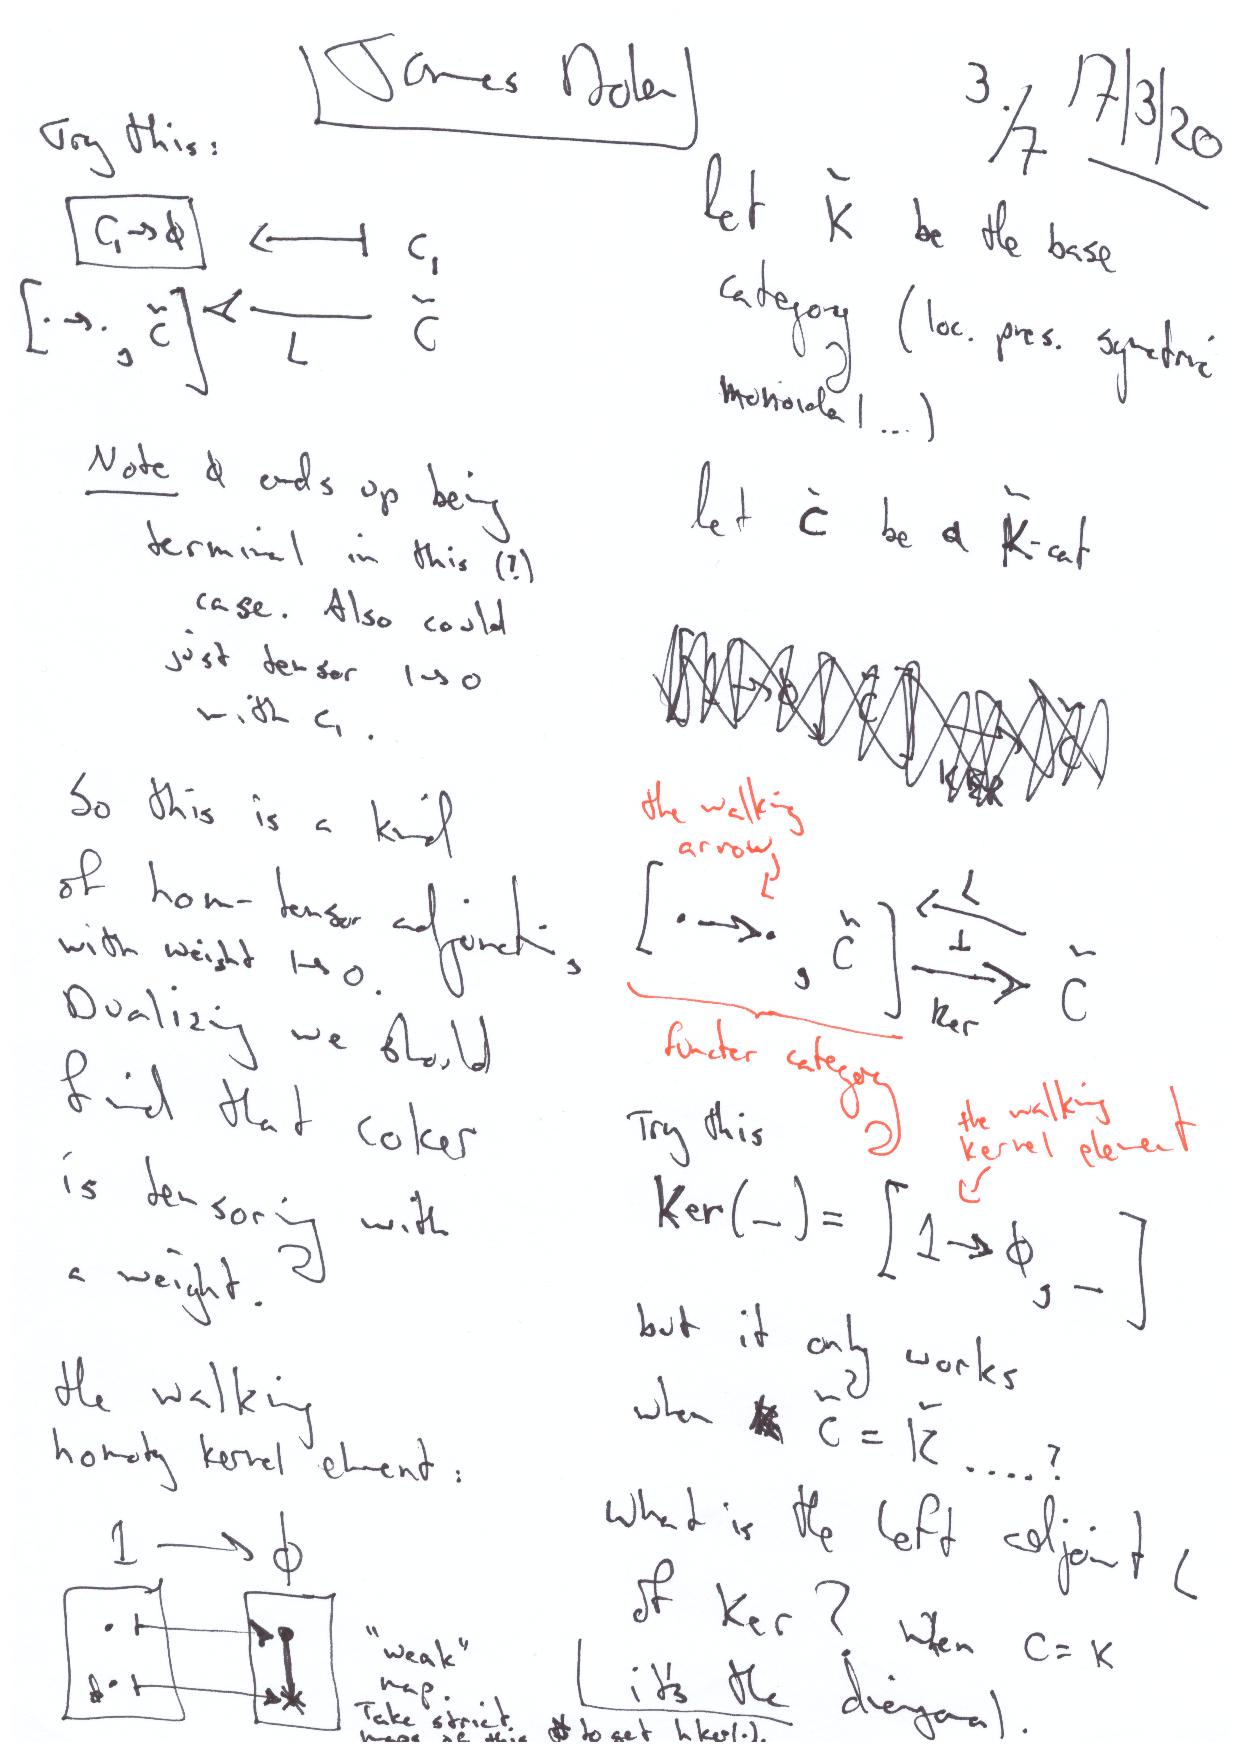 James Dolan
3./7 17/3/20
Try this:
C₁→ϕ ⟵| C₁
[·→·, C̃] ⟵ C̃
L
Note ϕ ends up being
terminal in this (?)
case. Also could
just tensor 1→0
with C₁.
So this is a kind
of hom-tensor adjuncti,
with weight 1→0.
Dualizing we should
find that coker
is tensoring with
a weight.
the walking
homoty kernel element:
1 → ϕ
"weak"
map.
Take strict
maps of this to get hker(·).
let K̃ be the base
category (loc. pres. symetric
monoidal ...)
let C̃ be a K̃-cat
the walking
arrow
[·→·, C̃] ⟵ L ⊥ ⟶ Ker C̃
functer category
Try this
the walking
kernel element
Ker(_) = [1→ϕ, _]
but it only works
when C̃ = K̃ ....?
what is the left adjoint L
of Ker? when C = K
it's the diagonal.